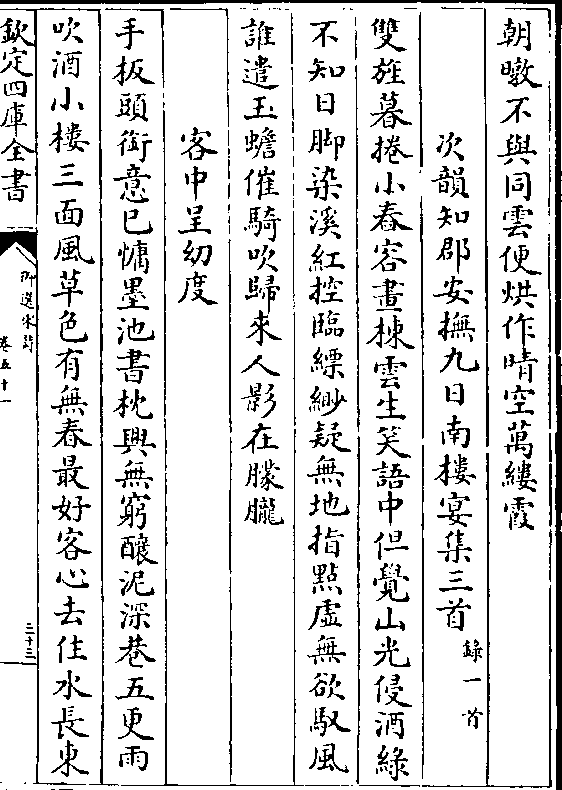 朝暾不與同雲便烘作晴空萬縷霞
次韻知郡安撫九日南樓宴集三首錄一首
雙旌暮捲小舂容畫棟雲生笑語中但覺山光侵酒綠
不知日脚染溪紅控臨縹緲疑無地指點虛無欲馭風
誰遣玉蟾催騎吹歸來人影在朦朧
客中呈幼度
手扳頭銜意已慵墨池書枕興無窮釀泥深巷五更雨
吹酒小樓三面風草色有無春最好客心去住水長東
欽定四庫全書
御選宋詩
卷五十一
二十三